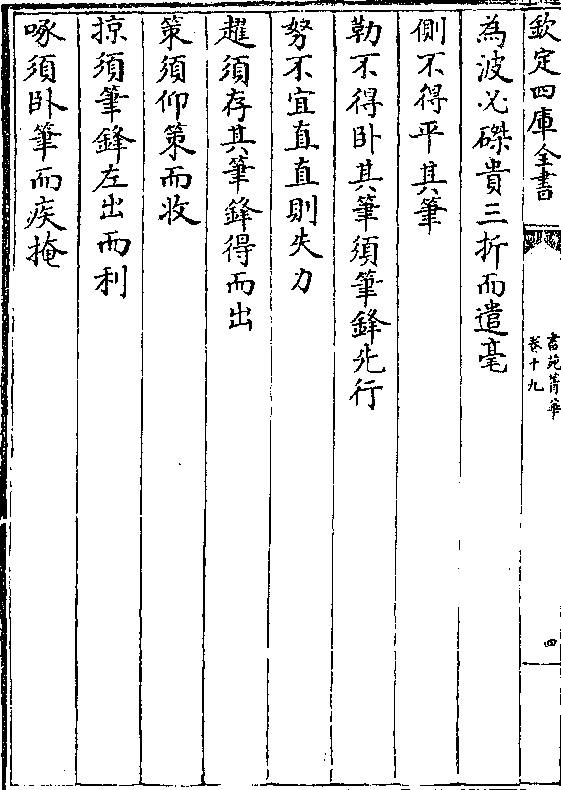 欽定四庫全書
書苑菁華
卷十九
四
為波必磔貴三折而遣毫
側不得平其筆
勒不得卧其筆須筆鋒先行
努不宜直直則失力
趯須存其筆鋒得而出
策須仰策而收
掠須筆鋒左出而利
啄須卧筆而疾掩